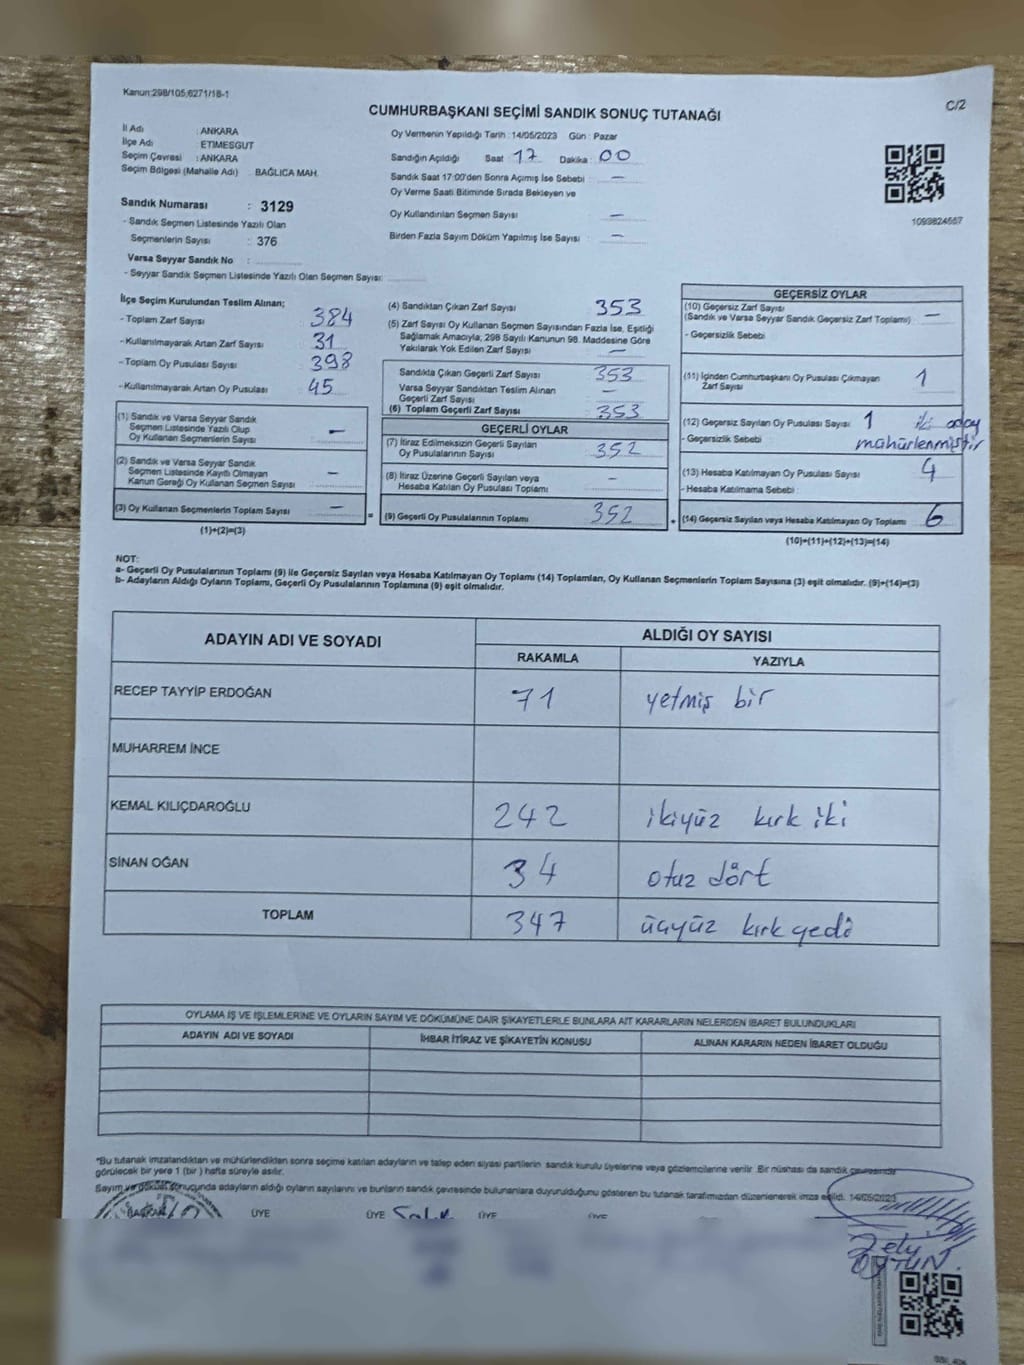 Kanun:298/105;6271/18-1
C/2
CUMHURBAŞKANI SEÇİMİ SANDIK SONUÇ TUTANAĞI
İl Adı : ANKARA
İlçe Adı : ETIMESGUT
Seçim Çevresi : ANKARA
Seçim Bölgesi (Mahalle Adı) : BAĞLICA MAH.
Oy Vermenin Yapıldığı Tarih : 14/05/2023 Gün : Pazar
Sandığın Açıldığı Saat 17 Dakika : 00
Sandık Saat 17:00'den Sonra Açımış İse Sebebi : —
Oy Verme Saati Bitiminde Sırada Bekleyen ve
Oy Kullandırılan Seçmen Sayısı —
Birden Fazla Sayım Döküm Yapılmış İse Sayısı : —
1093824557
Sandık Numarası : 3129
- Sandık Seçmen Listesinde Yazılı Olan
Seçmenlerin Sayısı : 376
Varsa Seyyar Sandık No :
- Seyyar Sandık Seçmen Listesinde Yazılı Olan Seçmen Sayısı:
İlçe Seçim Kurulundan Teslim Alınan;
- Toplam Zarf Sayısı 384
- Kullanılmayarak Artan Zarf Sayısı 31
- Toplam Oy Pusulası Sayısı 398
- Kullanılmayarak Artan Oy Pusulası 45
(1) Sandık ve Varsa Seyyar Sandık
Seçmen Listesinde Yazılı Olup
Oy Kullanan Seçmenlerin Sayısı —
(2) Sandık ve Varsa Seyyar Sandık
Seçmen Listesinde Kayıtlı Olmayan
Kanun Gereği Oy Kullanan Seçmen Sayısı —
(3) Oy Kullanan Seçmenlerin Toplam Sayısı —
(1)+(2)=(3)
(4) Sandıktan Çıkan Zarf Sayısı 353
(5) Zarf Sayısı Oy Kullanan Seçmen Sayısından Fazla İse, Eşitliği
Sağlamak Amacıyla, 298 Sayılı Kanunun 98. Maddesine Göre
Yakılarak Yok Edilen Zarf Sayısı —
Sandıkta Çıkan Geçerli Zarf Sayısı 353
Varsa Seyyar Sandıktan Teslim Alınan
Geçerli Zarf Sayısı —
(6) Toplam Geçerli Zarf Sayısı 353
GEÇERLİ OYLAR
(7) İtiraz Edilmeksizin Geçerli Sayılan
Oy Pusulalarının Sayısı 352
(8) İtiraz Üzerine Geçerli Sayılan veya
Hesaba Katılan Oy Pusulası Toplamı —
= (9) Geçerli Oy Pusulalarının Toplamı 352
GEÇERSİZ OYLAR
(10) Geçersiz Zarf Sayısı
(Sandık ve Varsa Seyyar Sandık Geçersiz Zarf Toplamı) —
- Geçersizlik Sebebi
(11) İçinden Cumhurbaşkanı Oy Pusulası Çıkmayan
Zarf Sayısı 1
(12) Geçersiz Sayılan Oy Pusulası Sayısı 1 iki aday
- Geçersizlik Sebebi mühürlenmiştir
(13) Hesaba Katılmayan Oy Pusulası Sayısı 4
- Hesaba Katılmama Sebebi
+ (14) Geçersiz Sayılan veya Hesaba Katılmayan Oy Toplamı 6
(10)+(11)+(12)+(13)=(14)
NOT:
a- Geçerli Oy Pusulalarının Toplamı (9) ile Geçersiz Sayılan veya Hesaba Katılmayan Oy Toplamı (14) Toplamları, Oy Kullanan Seçmenlerin Toplam Sayısına (3) eşit olmalıdır. (9)+(14)=(3)
b- Adayların Aldığı Oyların Toplamı, Geçerli Oy Pusulalarının Toplamına (9) eşit olmalıdır.
ADAYIN ADI VE SOYADI ALDIĞI OY SAYISI
RAKAMLA YAZIYLA
RECEP TAYYİP ERDOĞAN 71 yetmiş bir
MUHARREM İNCE
KEMAL KILIÇDAROĞLU 242 ikiyüz kırk iki
SİNAN OĞAN 34 otuz dört
TOPLAM 347 üçyüz kırk yedi
OYLAMA İŞ VE İŞLEMLERİNE VE OYLARIN SAYIM VE DÖKÜMÜNE DAİR ŞİKAYETLERLE BUNLARA AİT KARARLARIN NELERDEN İBARET BULUNDUKLARI
ADAYIN ADI VE SOYADI İHBAR İTİRAZ VE ŞİKAYETİN KONUSU ALINAN KARARIN NEDEN İBARET OLDUĞU
*Bu tutanak imzalandıktan ve mühürlendikten sonra seçime katılan adayların ve talep eden siyasi partilerin sandık kurulu üyelerine veya gözlemcilerine verilir. Bir nüshası da sandık çevresinde
görülecek bir yere 1 (bir) hafta süreyle asılır.
Sayım ve döküm sonucunda adayların aldığı oyların sayılarını ve bunların sandık çevresinde bulunanlara duyurulduğunu gösteren bu tutanak tarafımızdan düzenlenerek imza edildi. 14/05/2023
BAŞKAN ÜYE ÜYE ÜYE ÜYE